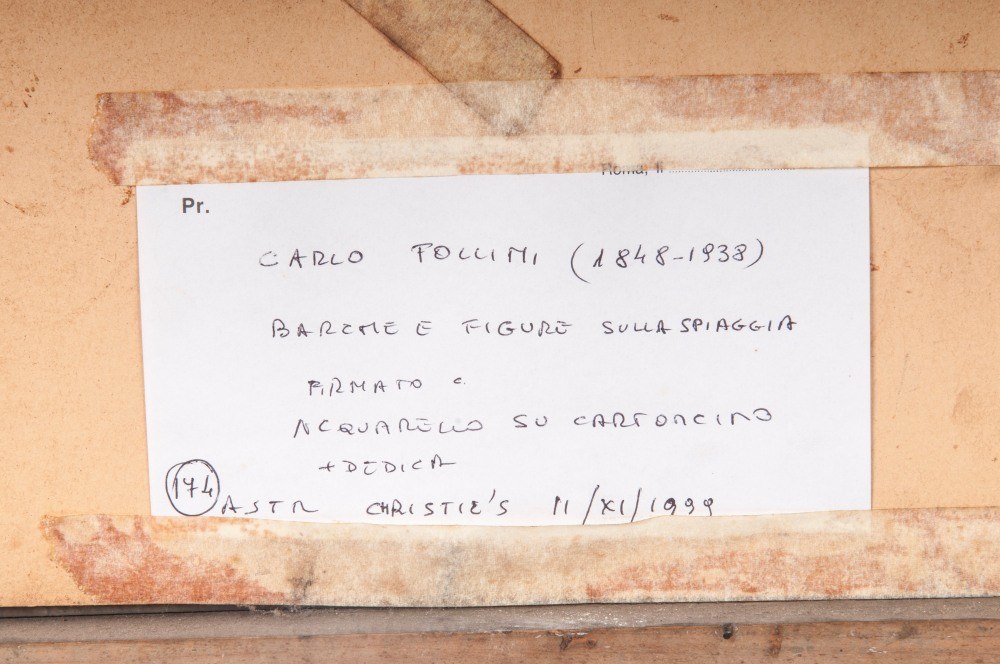 Roma, lì
Pr.
CARLO FOLLINI (1848-1938)
BARCHE E FIGURE SULLA SPIAGGIA
FIRMATO C.
ACQUARELLO SU CARTONCINO
+ DEDICA
174 ASTA CHRISTIE'S 11/XI/1999